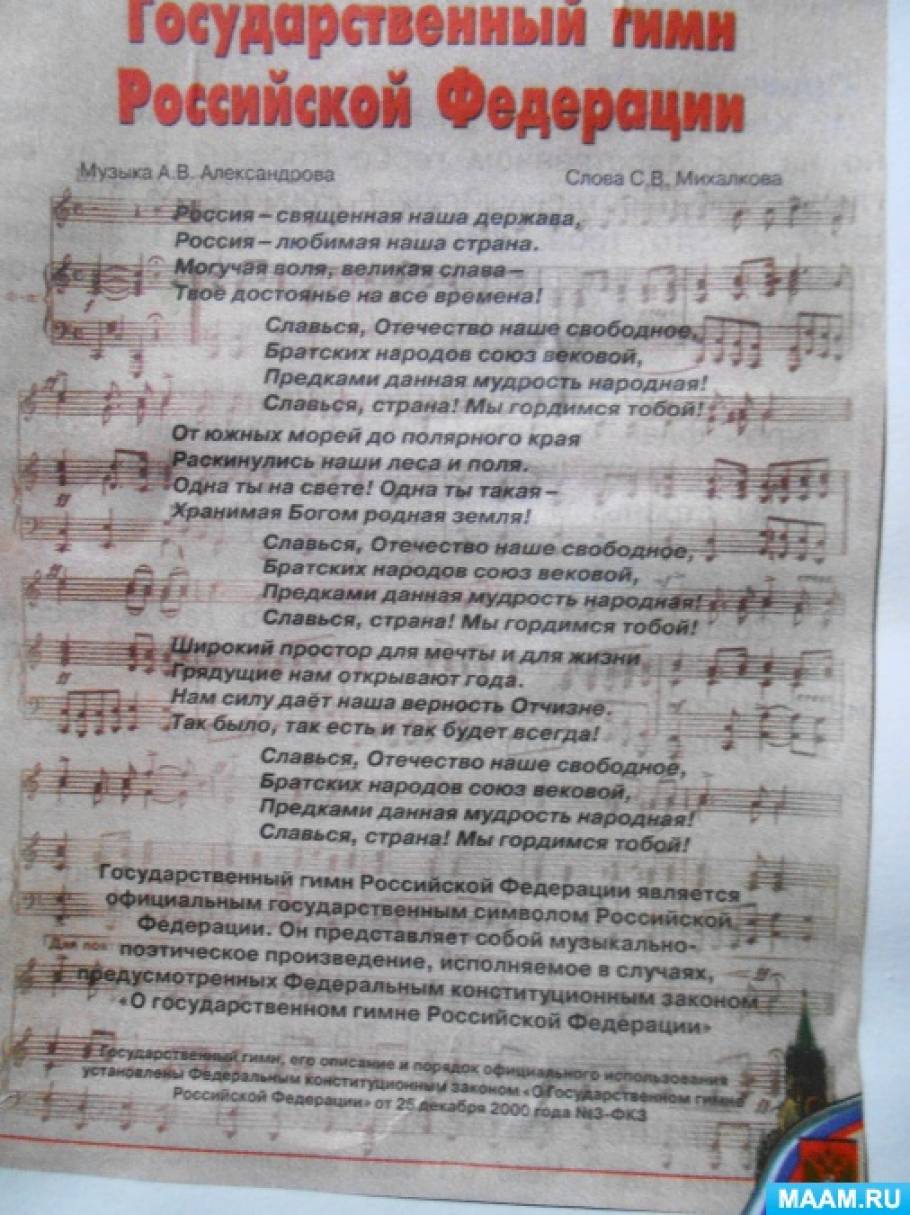 Государственный гимн
Российской Федерации
Музыка А.В. Александрова
Слова С.В. Михалкова
Россия – священная наша держава,
Россия – любимая наша страна.
Могучая воля, великая слава –
Твоё достоянье на все времена!
Славься, Отечество наше свободное,
Братских народов союз вековой,
Предками данная мудрость народная!
Славься, страна! Мы гордимся тобой!
От южных морей до полярного края
Раскинулись наши леса и поля.
Одна ты на свете! Одна ты такая –
Хранимая Богом родная земля!
Славься, Отечество наше свободное,
Братских народов союз вековой,
Предками данная мудрость народная!
Славься, страна! Мы гордимся тобой!
Широкий простор для мечты и для жизни
Грядущие нам открывают года.
Нам силу даёт наша верность Отчизне.
Так было, так есть и так будет всегда!
Славься, Отечество наше свободное,
Братских народов союз вековой,
Предками данная мудрость народная!
Славься, страна! Мы гордимся тобой!
Государственный гимн Российской Федерации является
официальным государственным символом Российской
Федерации. Он представляет собой музыкально-
поэтическое произведение, исполняемое в случаях,
предусмотренных Федеральным конституционным законом
«О государственном гимне Российской Федерации»
Государственный гимн, его описание и порядок официального использования
установлены Федеральным конституционным законом «О Государственном гимне
Российской Федерации» от 25 декабря 2000 года №3-ФКЗ
MAAM.RU